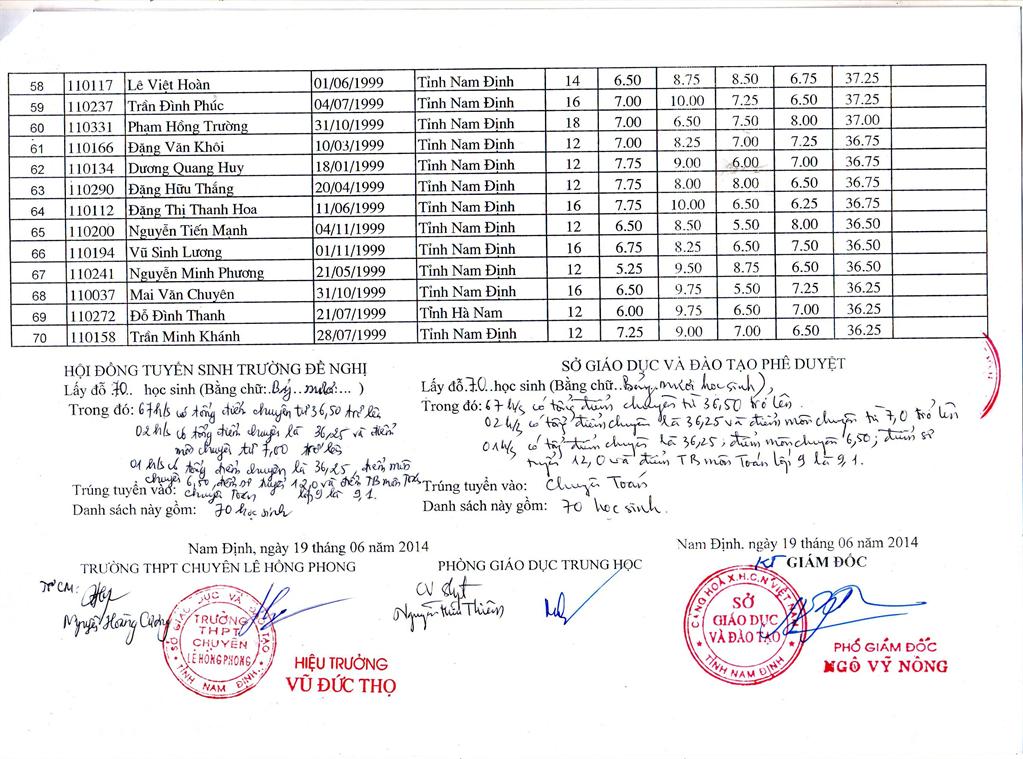 58 110117 Lê Việt Hoàn 01/06/1999 Tỉnh Nam Định 14 6.50 8.75 8.50 6.75 37.25
59 110237 Trần Đình Phúc 04/07/1999 Tỉnh Nam Định 16 7.00 10.00 7.25 6.50 37.25
60 110331 Phạm Hồng Trường 31/10/1999 Tỉnh Nam Định 18 7.00 6.50 7.50 8.00 37.00
61 110166 Đặng Văn Khôi 10/03/1999 Tỉnh Nam Định 12 7.00 8.25 7.00 7.25 36.75
62 110134 Dương Quang Huy 18/01/1999 Tỉnh Nam Định 12 7.75 9.00 6.00 7.00 36.75
63 110290 Đặng Hữu Thắng 20/04/1999 Tỉnh Nam Định 12 7.75 8.00 8.00 6.50 36.75
64 110112 Đặng Thị Thanh Hoa 11/06/1999 Tỉnh Nam Định 16 7.75 10.00 6.50 6.25 36.75
65 110200 Nguyễn Tiến Mạnh 04/11/1999 Tỉnh Nam Định 12 6.50 8.50 5.50 8.00 36.50
66 110194 Vũ Sinh Lương 01/11/1999 Tỉnh Nam Định 16 6.75 8.25 6.50 7.50 36.50
67 110241 Nguyễn Minh Phương 21/05/1999 Tỉnh Nam Định 12 5.25 9.50 8.75 6.50 36.50
68 110037 Mai Văn Chuyên 31/10/1999 Tỉnh Nam Định 16 6.50 9.75 5.50 7.25 36.25
69 110272 Đỗ Đình Thanh 21/07/1999 Tỉnh Hà Nam 12 6.00 9.75 6.50 7.00 36.25
70 110158 Trần Minh Khánh 28/07/1999 Tỉnh Nam Định 12 7.25 9.00 7.00 6.50 36.25
HỘI ĐỒNG TUYỂN SINH TRƯỜNG ĐỀ NGHỊ
Lấy đỗ 70 học sinh (Bằng chữ: Bảy mươi )
Trong đó: 67 h/s có tổng điểm chuyên từ 36,50 trở lên
02 h/s có tổng điểm chuyên là 36,25 và điểm
môn chuyên từ 7,00 trở lên
01 h/s có tổng điểm chuyên là 36,25, điểm môn
chuyên 6,50, điểm sơ tuyển 12,0 và điểm TB môn Toán
lớp 9 là 9,1.
Trúng tuyển vào: chuyên Toán
Danh sách này gồm: 70 học sinh
SỞ GIÁO DỤC VÀ ĐÀO TẠO PHÊ DUYỆT
Lấy đỗ 70 học sinh (Bằng chữ: Bảy mươi học sinh),
Trong đó: 67 h/s có tổng điểm chuyên từ 36,50 trở lên
02 h/s có tổng điểm chuyên là 36,25 và điểm môn chuyên từ 7,0 trở lên
01 h/s có tổng điểm chuyên là 36,25; điểm môn chuyên 6,50; điểm sơ
tuyển 12,0 và điểm TB môn Toán lớp 9 là 9,1.
Trúng tuyển vào: Chuyên Toán
Danh sách này gồm: 70 học sinh.
Nam Định, ngày 19 tháng 06 năm 2014
TRƯỜNG THPT CHUYÊN LÊ HỒNG PHONG
Nguyễn Hoàng Cương
SỞ GIÁO DỤC VÀ ĐÀO TẠO
TRƯỜNG
THPT
CHUYÊN
LÊ HỒNG PHONG
TỈNH NAM ĐỊNH
HIỆU TRƯỞNG
VŨ ĐỨC THỌ
PHÒNG GIÁO DỤC TRUNG HỌC
CV
Nam Định. ngày 19 tháng 06 năm 2014
KT GIÁM ĐỐC
CỘNG HOÀ X.H.C.N VIỆT NAM
SỞ
GIÁO DỤC
VÀ ĐÀO TẠO
TỈNH NAM ĐỊNH
PHÓ GIÁM ĐỐC
NGÔ VỸ NÔNG